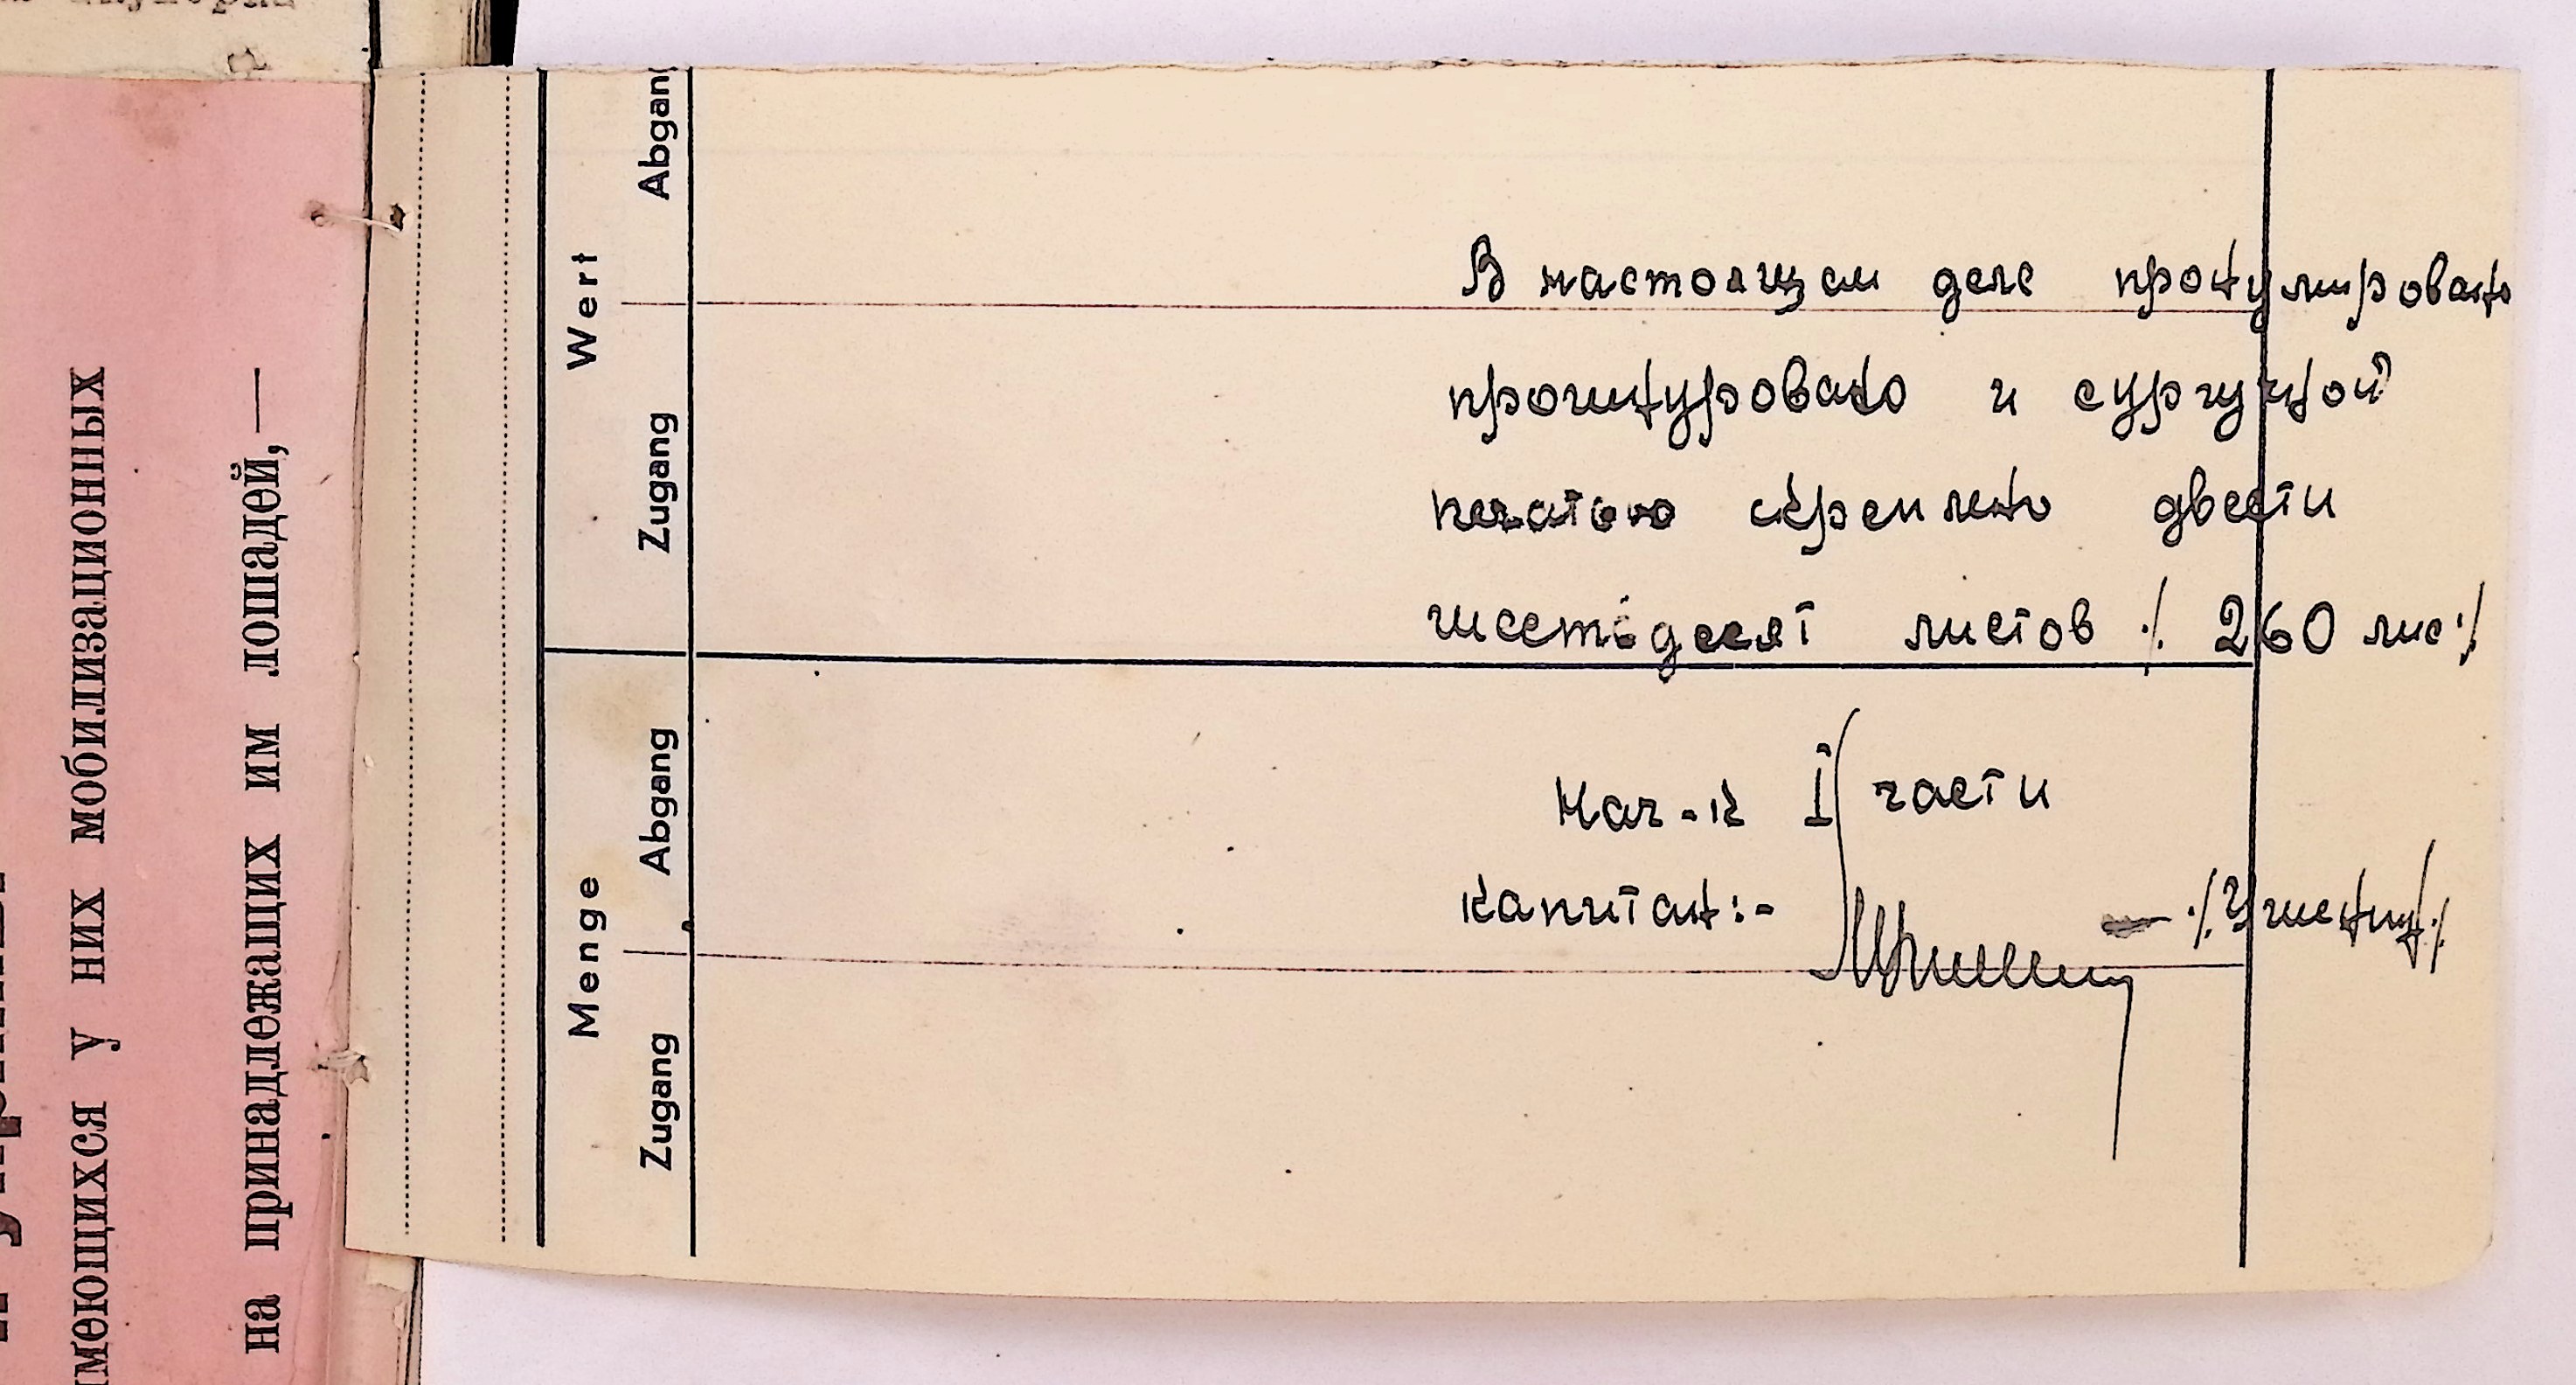 В настоящем деле пронумеровано
прошнуровано и сургучной
печатью скреплено двести
шестьдесят листов ./. 260 лис./.
Нач-к I части
капитан:-
Wert
Abgang
Zugang
Menge
Abgang
Zugang
имеющихся у них мобилизационных
на принадлежащих им лошадей,—